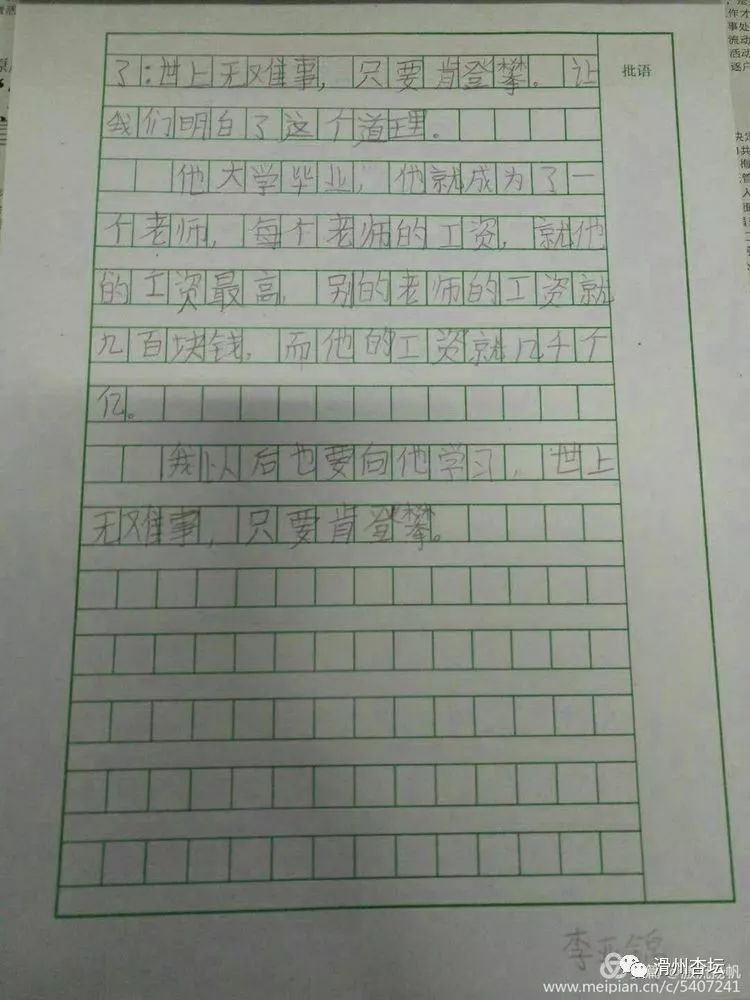 了:世上无难事，只要肯登攀。让
批语
我们明白了这个道理。
他大学毕业，他就成为了一
个老师，每个老师的工资，就他
的工资最高，别的老师的工资就
九百块钱，而他的工资就几千个
亿。
我以后也要向他学习，世上
无难事，只要肯登攀。
李亚
滑州杏坛
www.meipian.cn/c/5407241